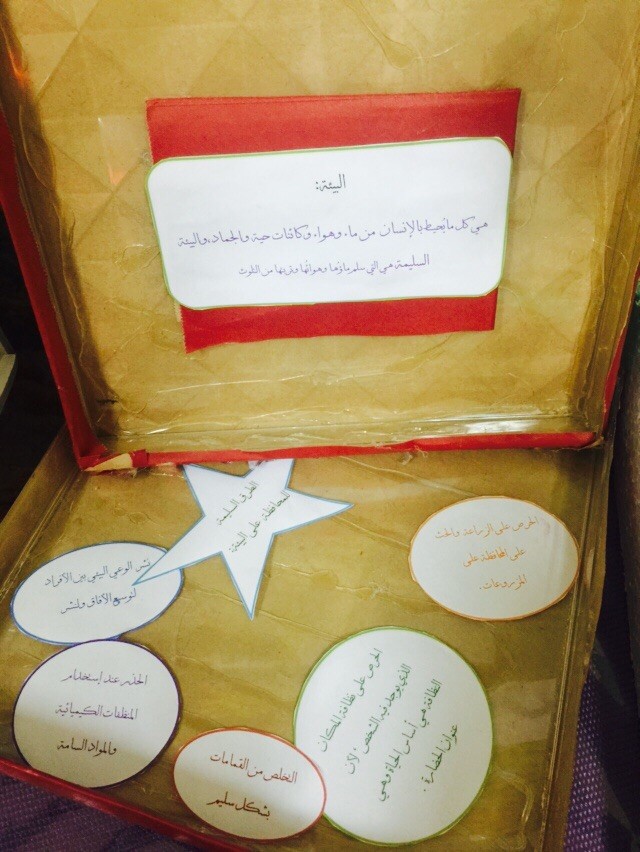 البيئة:
هي كل ما يُحيط بالإنسان من ماء وهواء وكائنات حية والجماد، والبيئة
السليمة هي التي سلم ماؤها وهوائها وتربتها من التلوث
الطرق السليمة
للمحافظة على البيئة:
الحرص على الزراعة والحث
على المحافظة على
المزروعات.
نشر الوعي البيئي بين الأفراد
لتوسيع الآفاق ولنشر
الحرص على نظافة المكان
الذي يوجد فيه الشخص، لأن
النظافة هي أساس الحياة وهي
عنوان الحضارة.
الحذر عند إستخدام
المنظفات الكيميائية
والمواد السامة
التخلص من القمامات
بشكل سليم